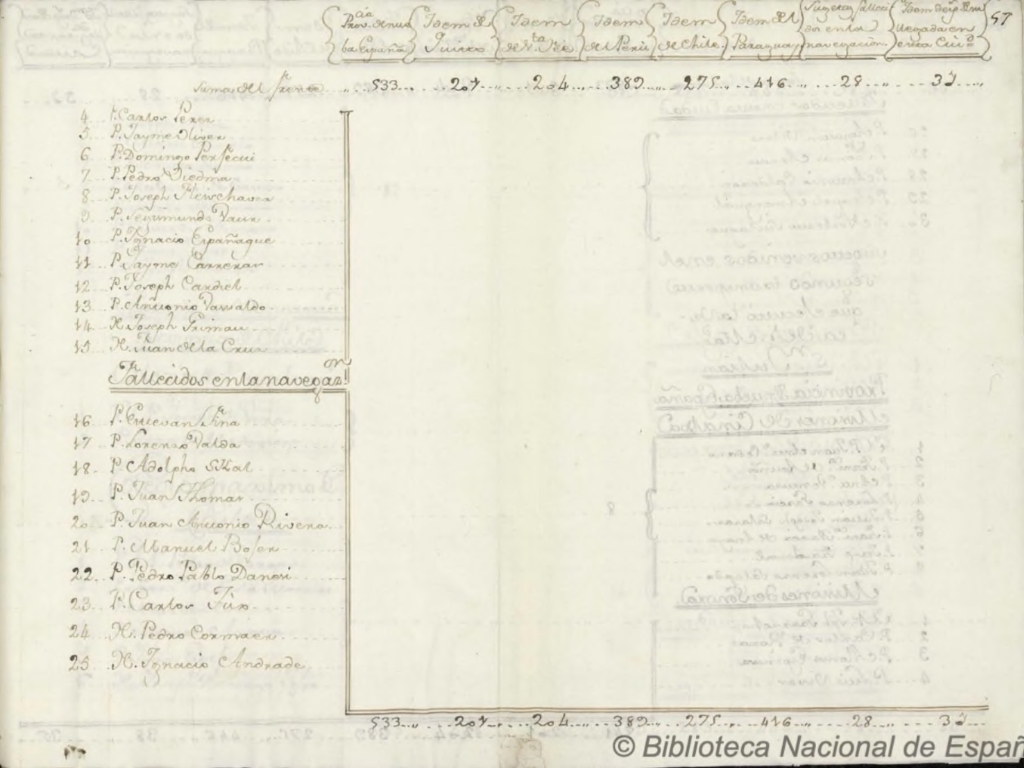 Prov.cia Nueba España | Idem de Quito | Idem de N. Sta. Fée | Idem del Perù | Idem de Chile | Idem del Paraguay | Sugetos fallecidos en la navegacion | llegada en esta Ciu.d
57
Suma del frente 533 207 204 389 275 416 28
4 P. Carlos Perez
5 P. Jayme Oliver
6 P. Domingo Perfecui
7 P. Pedro Viedma
8 P. Joseph
9 P. Segismundo Baur
10 P. Ygnacio
11 P. Jayme Carreras
12 P. Joseph Cardiel
13 P. Antonio Tavaldo
14 H. Joseph Grimau
15 H. Juan de la Cruz
Fallecidos en la navegaz.on
16 P. Estevan Fina
17 P. Lorenzo Valda
18 P. Adolpho Skal
19 P. Juan Thomas
20 P. Juan Antonio Rivera
21 P. Manuel Boser
22 P. Pedro Pablo Danesi
23 P. Carlos Tux
24 H. Pedro Cormaer
25 H. Ygnacio Andrade
533 207 204 389 275 416 28
© Biblioteca Nacional de Españ